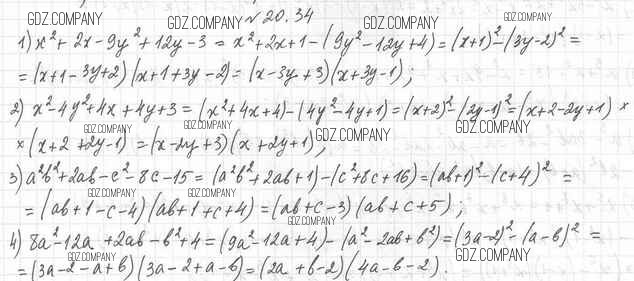 GDZ.COMPANY GDZ.COMPANY № 20.34 GDZ.COMPANY GDZ.COMPANY
1) x² + 2x - 9y² + 12y - 3 = x² + 2x + 1 - (9y² - 12y + 4) = (x+1)² - (3y-2)² =
= (x+1-3y+2)(x+1+3y-2) = (x-3y+3)(x+3y-1);
2) x² - 4y² + 4x + 4y + 3 = (x² + 4x + 4) - (4y² - 4y + 1) = (x+2)² - (2y-1)² = (x+2-2y+1) ×
GDZ.COMPANY GDZ.COMPANY GDZ.COMPANY GDZ.COMPANY
× (x+2+2y-1) = (x-2y+3)(x+2y+1);
3) a²b² + 2ab - c² - 8c - 15 = (a²b² + 2ab + 1) - (c² + 8c + 16) = (ab+1)² - (c+4)² =
GDZ.COMPANY GDZ.COMPANY
= (ab+1-c-4)(ab+1+c+4) = (ab+c-3)(ab+c+5);
GDZ.COMPANY
4) 8a² - 12a + 2ab - b² + 4 = (9a² - 12a + 4) - (a² - 2ab + b²) = (3a-2)² - (a-b)² =
GDZ.COMPANY GDZ.COMPANY
= (3a-2-a+b)(3a-2+a-b) = (2a+b-2)(4a-b-2).